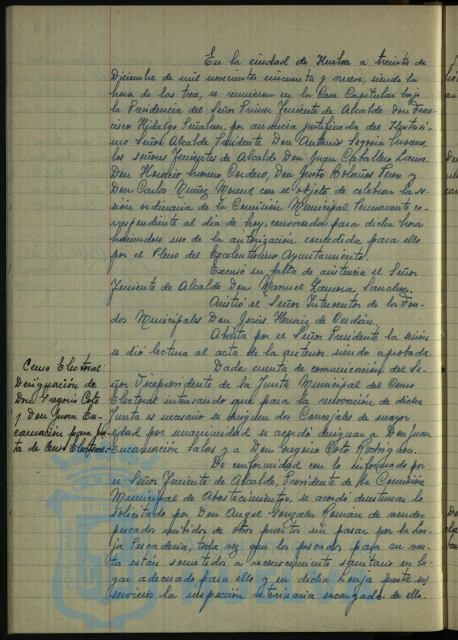 En la ciudad de Huelva a treinta de
Diciembre de mil novecientos cincuenta y nueve, siendo la
hora de las trece, se reunieron en la Casa Capitular bajo
la Presidencia del Señor Primer Teniente de Alcalde Don Fran-
cisco Hidalgo Peñalver, por ausencia justificada del Ilustrísi-
mo Señor Alcalde Presidente Don Antonio Segovia Moreno,
los señores Tenientes de Alcalde Don Juan Caballero
Don Horacio Moreno Cordero, Don Justo Bolaños y
Don Carlos Muñoz Moreno, con el objeto de celebrar la se-
sión ordinaria de la Comisión Municipal Permanente co-
rrespondiente al día de hoy, convocada para dicha hora
haciéndose uso de la autorización concedida para ello
por el Pleno del Excelentísimo Ayuntamiento.
Excusó su falta de asistencia el Señor
Teniente de Alcalde Don Manuel Zamora Sánchez.
Asistió el Señor Interventor de los Fon-
dos Municipales Don Jesús de
Abierta por el Señor Presidente la sesión
se dió lectura al acta de la anterior siendo aprobada.
Censo Electoral:
Designación de
Don Gregorio Coto
y Don Juan En-
carnación para Jun-
ta de Censo Electoral.
Dada cuenta de comunicación del Se-
ñor Vicepresidente de la Junta Municipal del Censo
Electoral interesando que para la renovación de dicha
Junta es necesario se designen dos Concejales de mayor
edad por unanimidad se acordó designar a Don Juan
Encarnación Salas y a Don Gregorio Coto Rodríguez.
De conformidad con lo informado por
el Señor Teniente de Alcalde, Presidente de la Comisión
Municipal de Abastecimientos, se acordó desestimar lo
solicitado por Don Angel González Román de vender
pescados recibidos de otros puertos sin pasar por la Lon-
ja Pescadería, toda vez que los pescados para su ven-
ta están sometidos a reconocimiento sanitario en lu-
gar adecuado para ello y en dicha Lonja presta sus
servicios la inspección veterinaria encargada de ello.